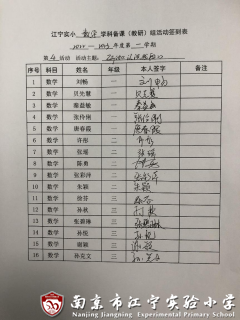 江宁实小 数学 学科备课(教研)组活动签到表
年度第一学期
第 4 次 活动主题:
序号 科目 姓名 年级 本人签字 备注
1 数学 刘畅 一 刘畅
2 数学 贝先慧 一
3 数学 秦益敏 一
4 数学 张伶俐 一 张伶俐
5 数学 唐春霞 一 唐春霞
6 数学 许彤 二 许彤
7 数学 张瑶 二 张瑶
8 数学 陈勇 二
9 数学 张彩萍 二
10 数学 朱颖 二 朱颖
11 数学 徐芬 三 徐芬
12 数学 孙秋 三
13 数学 张碧琳 三
14 数学 孙悦 三 孙悦
15 数学 谢颖 三
16 数学 孙先文 三
南京市江宁实验小学
Nanjing Jiangning Experimental Primary School